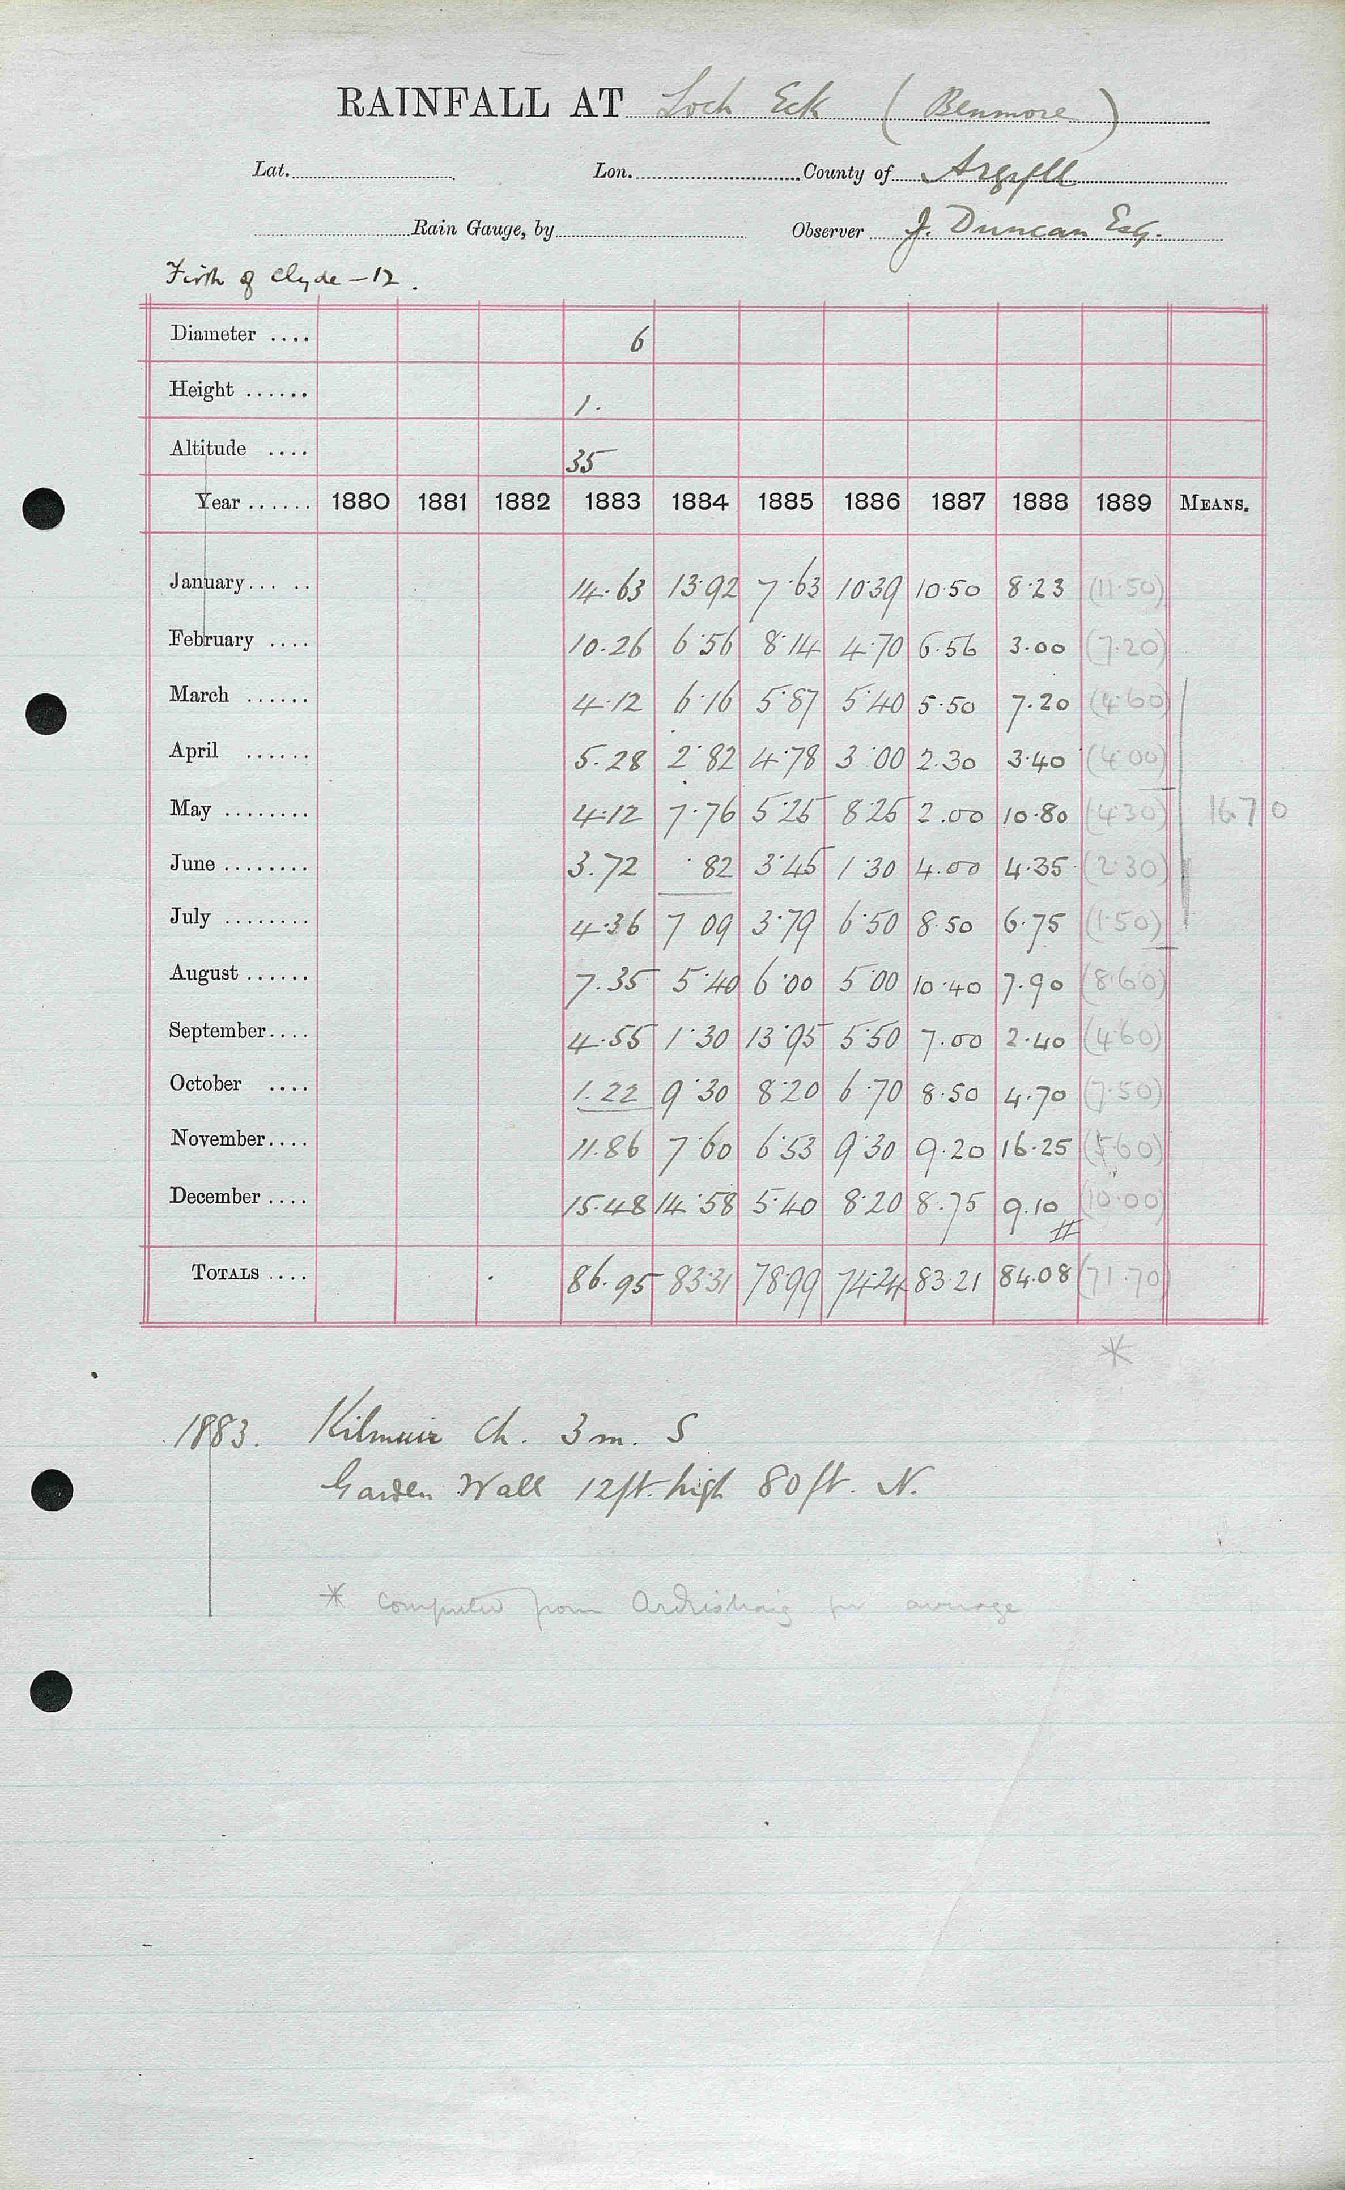 RAINFALL AT Loch Eck (Benmore)
Lat. Lon. County of Argyll
Rain Gauge, by Observer J. Duncan Esq.
Firth of Clyde - 12.
Diameter .... 6
Height ...... 1.
Altitude .... 35
Year ...... 1880 1881 1882 1883 1884 1885 1886 1887 1888 1889 MEANS.
January... .. 14.63 13.92 7.63 10.39 10.50 8.23 (11.50)
February .... 10.26 6.56 8.14 4.70 6.56 3.00 (7.20)
March ...... 4.12 6.16 5.87 5.40 5.50 7.20 (4.60)
April ...... 5.28 2.82 4.78 3.00 2.30 3.40 (4.00)
May ........ 4.12 7.76 5.25 8.25 2.00 10.80 (4.30) 16.70
June ........ 3.72 .82 3.45 1.30 4.00 4.35 (2.30)
July ........ 4.36 7 09 3.79 6.50 8.50 6.75 (1.50)
August ...... 7.35 5.40 6.00 5.00 10.40 7.90 (8.60)
September.... 4.55 1.30 13.95 5.50 7.00 2.40 (4.60)
October .... 1.22 9.30 8.20 6.70 8.50 4.70 (7.50)
November.... 11.86 7.60 6.53 9.30 9.20 16.25 (5.60)
December .... 15.48 14.58 5.40 8.20 8.75 9.10 (10.00)
TOTALS .... 86.95 83.31 78.99 74.24 83.21 84.08 (71.70)
*
1883. Kilmuir Ch. 3 m. S
Garden Wall 12 ft. high 80 ft. N.
* Computed from Ardrishaig for average